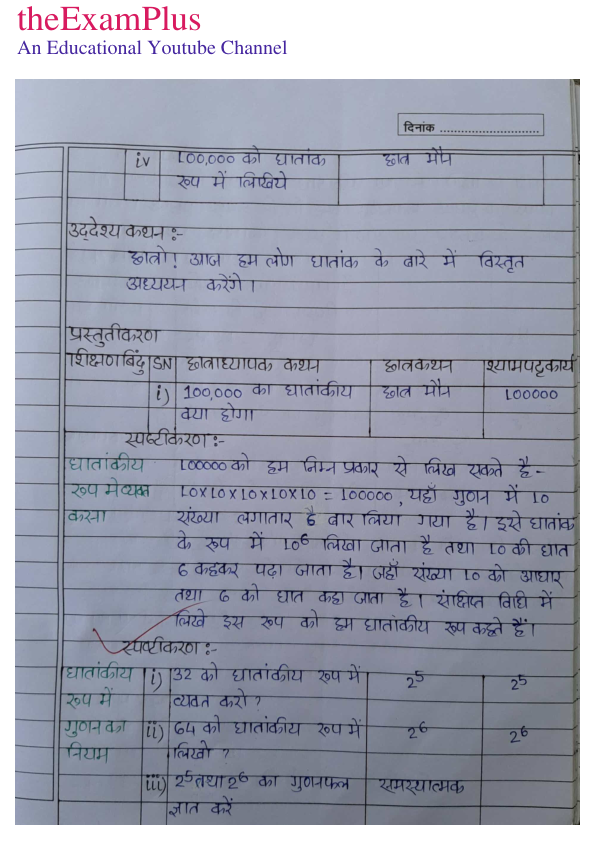 theExamPlus
An Educational Youtube Channel
दिनांक ............................
iv 100,000 को घातांक छात्र मौन
रूप में लिखिये
उद्देश्य कथन :-
छात्रो! आज हम लोग घातांक के बारे में विस्तृत
अध्ययन करेंगे।
प्रस्तुतीकरण
शिक्षणबिंदु SN छात्राध्यापक कथन छात्रकथन श्यामपट्टकार्य
i) 100,000 का घातांकीय छात्र मौन 100000
क्या होगा
स्पष्टीकरण :-
घातांकीय 100000 को हम निम्न प्रकार से लिख सकते है -
रूप मे व्यक्त 10x10x10x10x10 = 100000, यहाँ गुणन में 10
करना संख्या लगातार 6 बार लिया गया है। इसे घातांक
के रूप में 10⁶ लिखा जाता है तथा 10 की घात
6 कहकर पढ़ा जाता है। जहाँ संख्या 10 को आधार
तथा 6 को घात कहा जाता है। संक्षिप्त विधि में
लिखे इस रूप को हम घातांकीय रूप कहते हैं।
स्पष्टीकरण :-
घातांकीय i) 32 को घातांकीय रूप में 2⁵ 2⁵
रूप में व्यक्त करो ?
गुणन का ii) 64 को घातांकीय रूप में 2⁶ 2⁶
नियम लिखो ?
iii) 2⁵ तथा 2⁶ का गुणनफल समस्यात्मक
ज्ञात करें